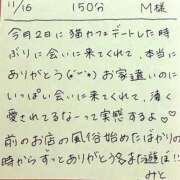 11/16 150分 M様
今月2に猫カフェデートした時
ぶりに会いに来てくれて、本当に
ありがとう(˘ᵕ˘) お家遠いのに
いっぱい会いに来てくれて、凄く
愛されてるなーって実感するよ♡
前のお店の風俗始めたばかりの
時からずっとありがとう また遊ぼ!!
みと